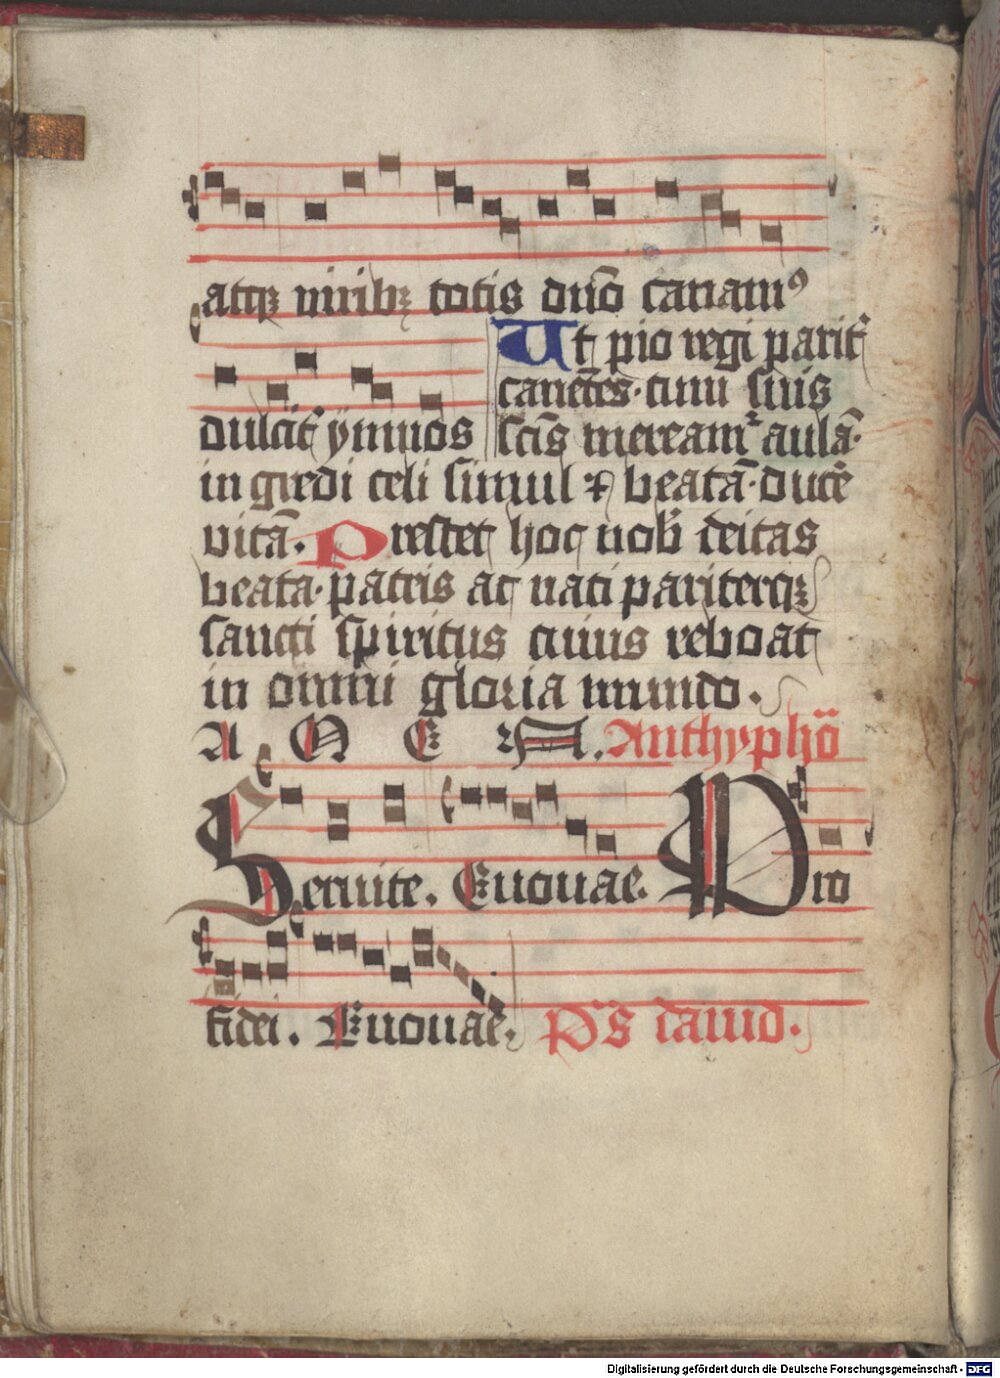 atqꝫ uiribꝫ totis dn̄o canamꝰ
Ut pio regi parit̉
canētes· cum suis
dulcit̉ ymnos
sc̄is mereamᷣ aulā·
in gredi celi simul ⁊ beatā· ducẽ
vitā. Prestet hoc nob̉ deitas
beata· patris ac nati pariterqꝫ
sancti spiritus cuius reboat
in omni gloria mundo.
A M E N. Anthypho᷒
Seruite. Euouae. Pro
fidei. Euouae. Ps̄ dauid.
Digitalisierung gefördert durch die Deutsche Forschungsgemeinschaft - DFG